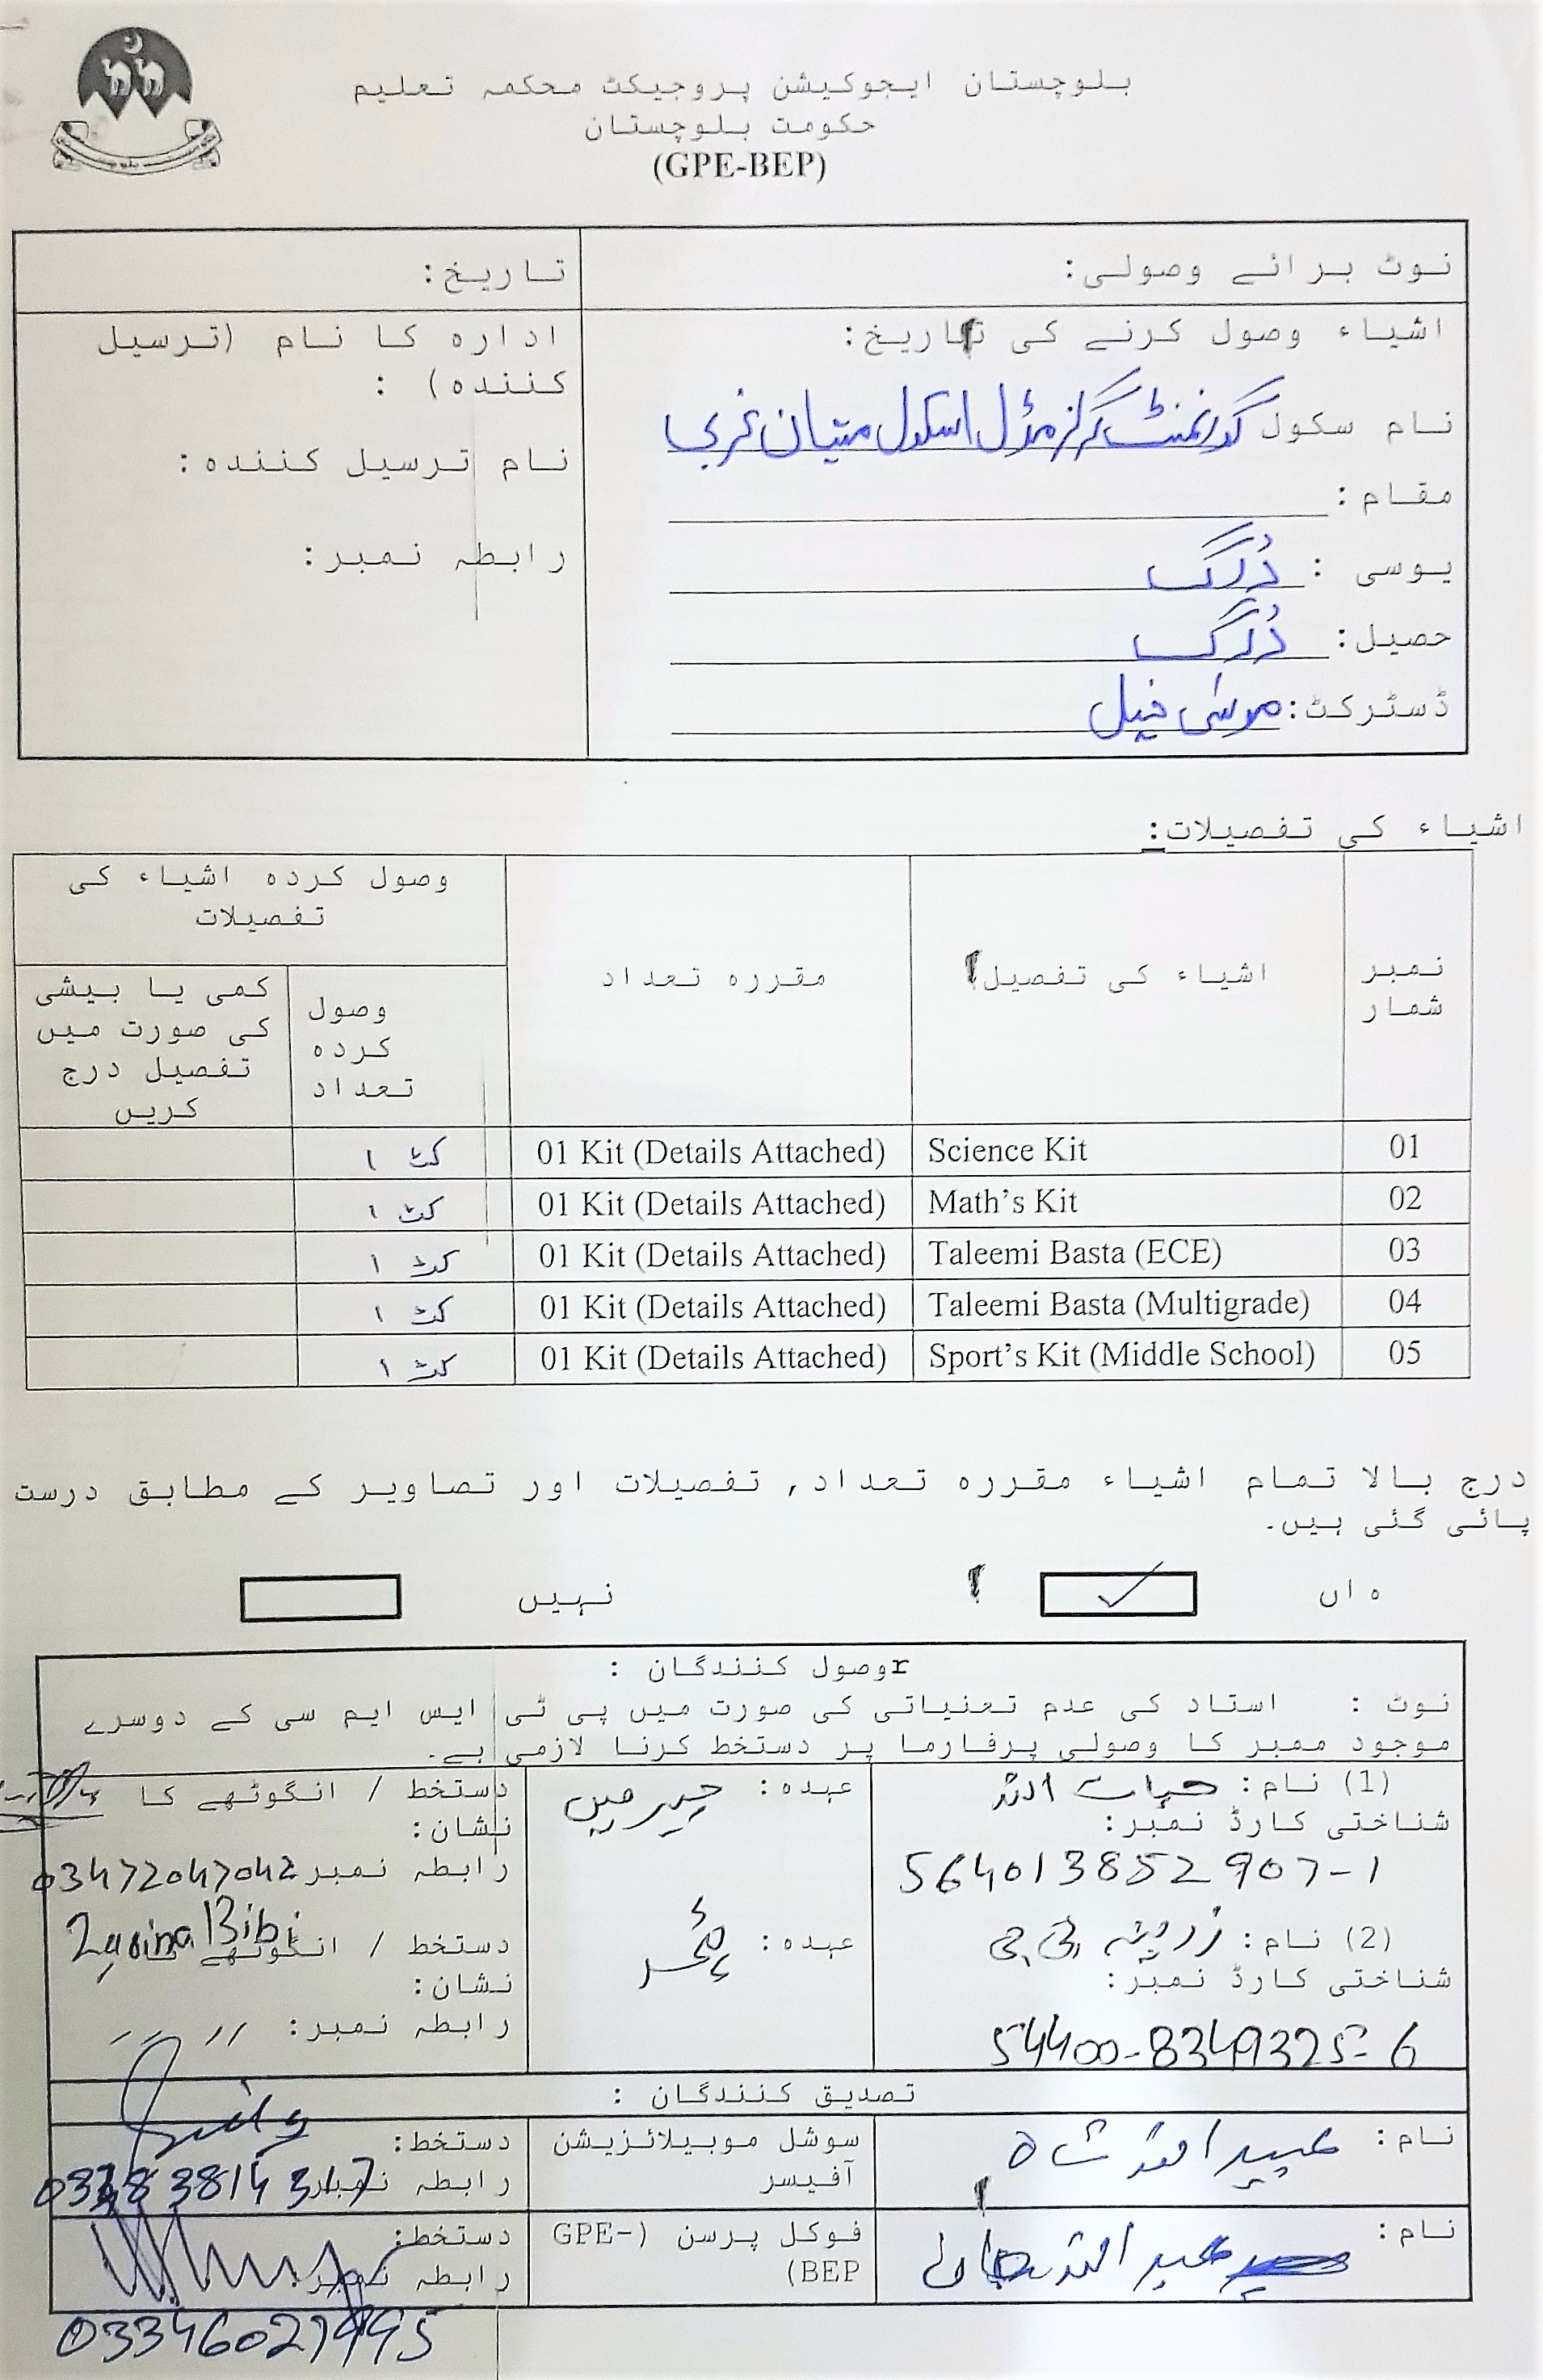 بلوچستان ایجوکیشن پروجیکٹ محکمہ تعلیم
حکومت بلوچستان
(GPE-BEP)
نوٹ برائے وصولی:
تاریخ:
اشیاء وصول کرنے کی تاریخ:
نام سکول گورنمنٹ گرلز مڈل اسکول متیان غربی
مقام:
یوسی : دُرگ
حصیل: دُرگ
ڈسٹرکٹ: موسیٰ خیل
ادارہ کا نام (ترسیل
کنندہ) :
نام ترسیل کنندہ:
رابطہ نمبر:
اشیاء کی تفصیلات:
نمبر شمار
اشیاء کی تفصیل
مقررہ تعداد
وصول کردہ اشیاء کی
تفصیلات
وصول
کردہ
تعداد
کمی یا بیشی
کی صورت میں
تفصیل درج
کریں
01 Science Kit 01 Kit (Details Attached) کٹ ۱
02 Math’s Kit 01 Kit (Details Attached) کٹ ۱
03 Taleemi Basta (ECE) 01 Kit (Details Attached) کٹ ۱
04 Taleemi Basta (Multigrade) 01 Kit (Details Attached) کٹ ۱
05 Sport’s Kit (Middle School) 01 Kit (Details Attached) کٹ ۱
درج بالا تمام اشیاء مقررہ تعداد, تفصیلات اور تصاویر کے مطابق درست
پائی گئی ہیں۔
ہاں ✓ نہیں
rوصول کنندگان :
نوٹ : استاد کی عدم تعنیاتی کی صورت میں پی ٹی ایس ایم سی کے دوسرے
موجود ممبر کا وصولی پرفارما پر دستخط کرنا لازمی ہے۔
(1) نام: حیات اللہ
شناختی کارڈ نمبر:
564013852907-1
عہدہ: چیرمین
دستخط / انگوٹھے کا
نشان:
رابطہ نمبر 03472047042
(2) نام: زرینہ بی بی
شناختی کارڈ نمبر:
54400-8349325-6
عہدہ: ٹیچر
Zarina Bibi
دستخط / انگوٹھے
نشان:
رابطہ نمبر: 
تصدیق کنندگان :
نام: عبید اللہ شاہ
سوشل موبیلائزیشن
آفیسر
دستخط:
رابطہ نمبر
نام: عبد اللہ
فوکل پرسن (GPE-
BEP)
دستخط:
رابطہ نمبر: